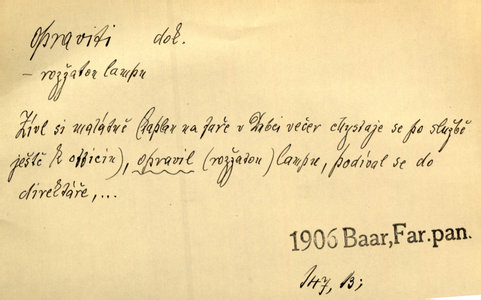 opraviti dok.
– rozžatou lampu
Zívl si malátně (kaplan na faře v Dobci večer chystaje se po službě
ještě k officiu), opravil (rozžatou) lampu, podíval se do
direktáře,...
1906 Baar, Far.pan.
147, B;